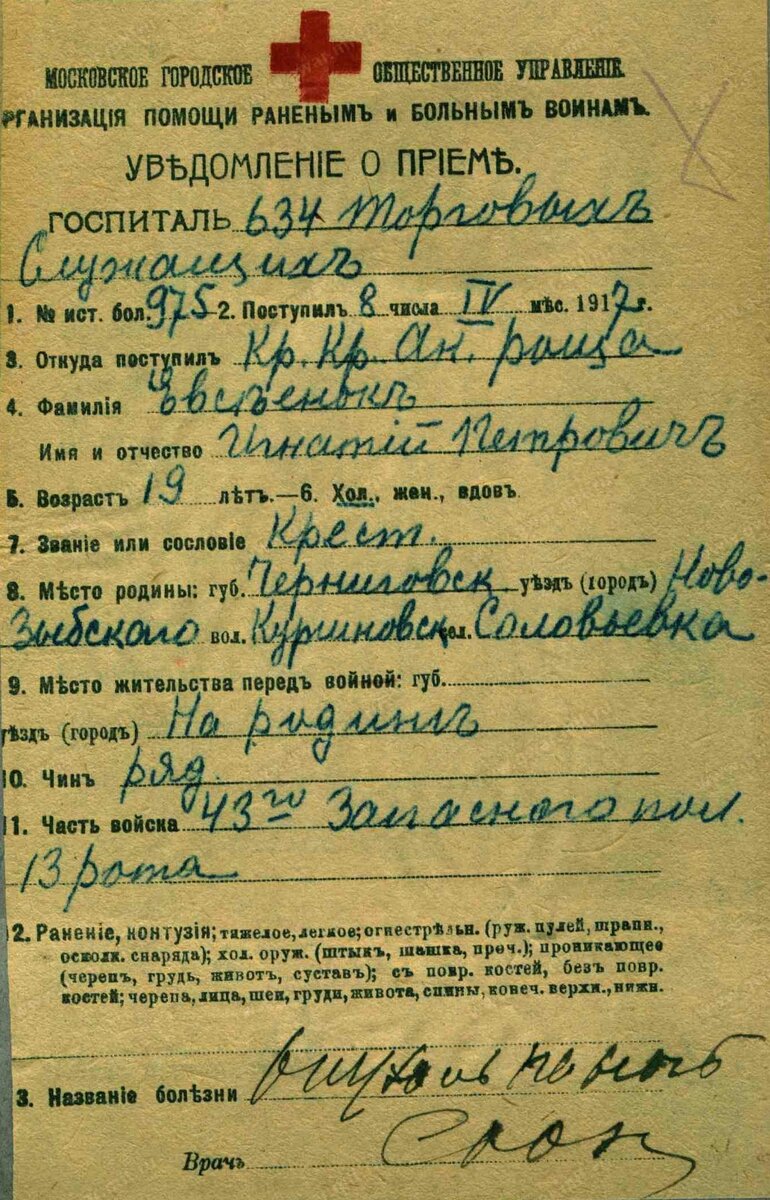 МОСКОВСКОЕ ГОРОДСКОЕ ОБЩЕСТВЕННОЕ УПРАВЛЕНІЕ.
РГАНИЗАЦІЯ ПОМОЩИ РАНЕНЫМЪ и БОЛЬНЫМЪ ВОИНАМЪ.
УВѢДОМЛЕНІЕ О ПРІЕМѢ.
ГОСПИТАЛЬ 634 Торговыхъ
Служащихъ
1. № ист. бол. 975 2. Поступилъ 8 числа IV мѣс. 1917 г.
3. Откуда поступилъ Кр. Кр. Ан. роща
4. Фамилія Евсѣенокъ
Имя и отчество Игнатій Петровичъ
5. Возрастъ 19 лѣтъ.—6. Хол., жен., вдов.
7. Званіе или сословіе Крест.
8. Мѣсто родины: губ. Черниговск уѣздъ (городъ) Ново-
зыбскаго вол. Куршновск сел. Соловьевка
9. Мѣсто жительства передъ войной: губ.
уѣздъ (городъ) На родинѣ
10. Чинъ ряд.
11. Часть войска 43го Запаснаго пол.
13 рота
12. Раненіе, контузія; тяжелое, легкое; огнестрѣльн. (руж. пулей, шрапн.,
осколк. снаряда); хол. оруж. (штыкъ, шашка, проч.); проникающее
(черепъ, грудь, животъ, суставъ); съ повр. костей, безъ повр.
костей; черепа, лица, шеи, груди, живота, спины, конеч. верхн., нижн.
3. Названіе болѣзни
Врачъ